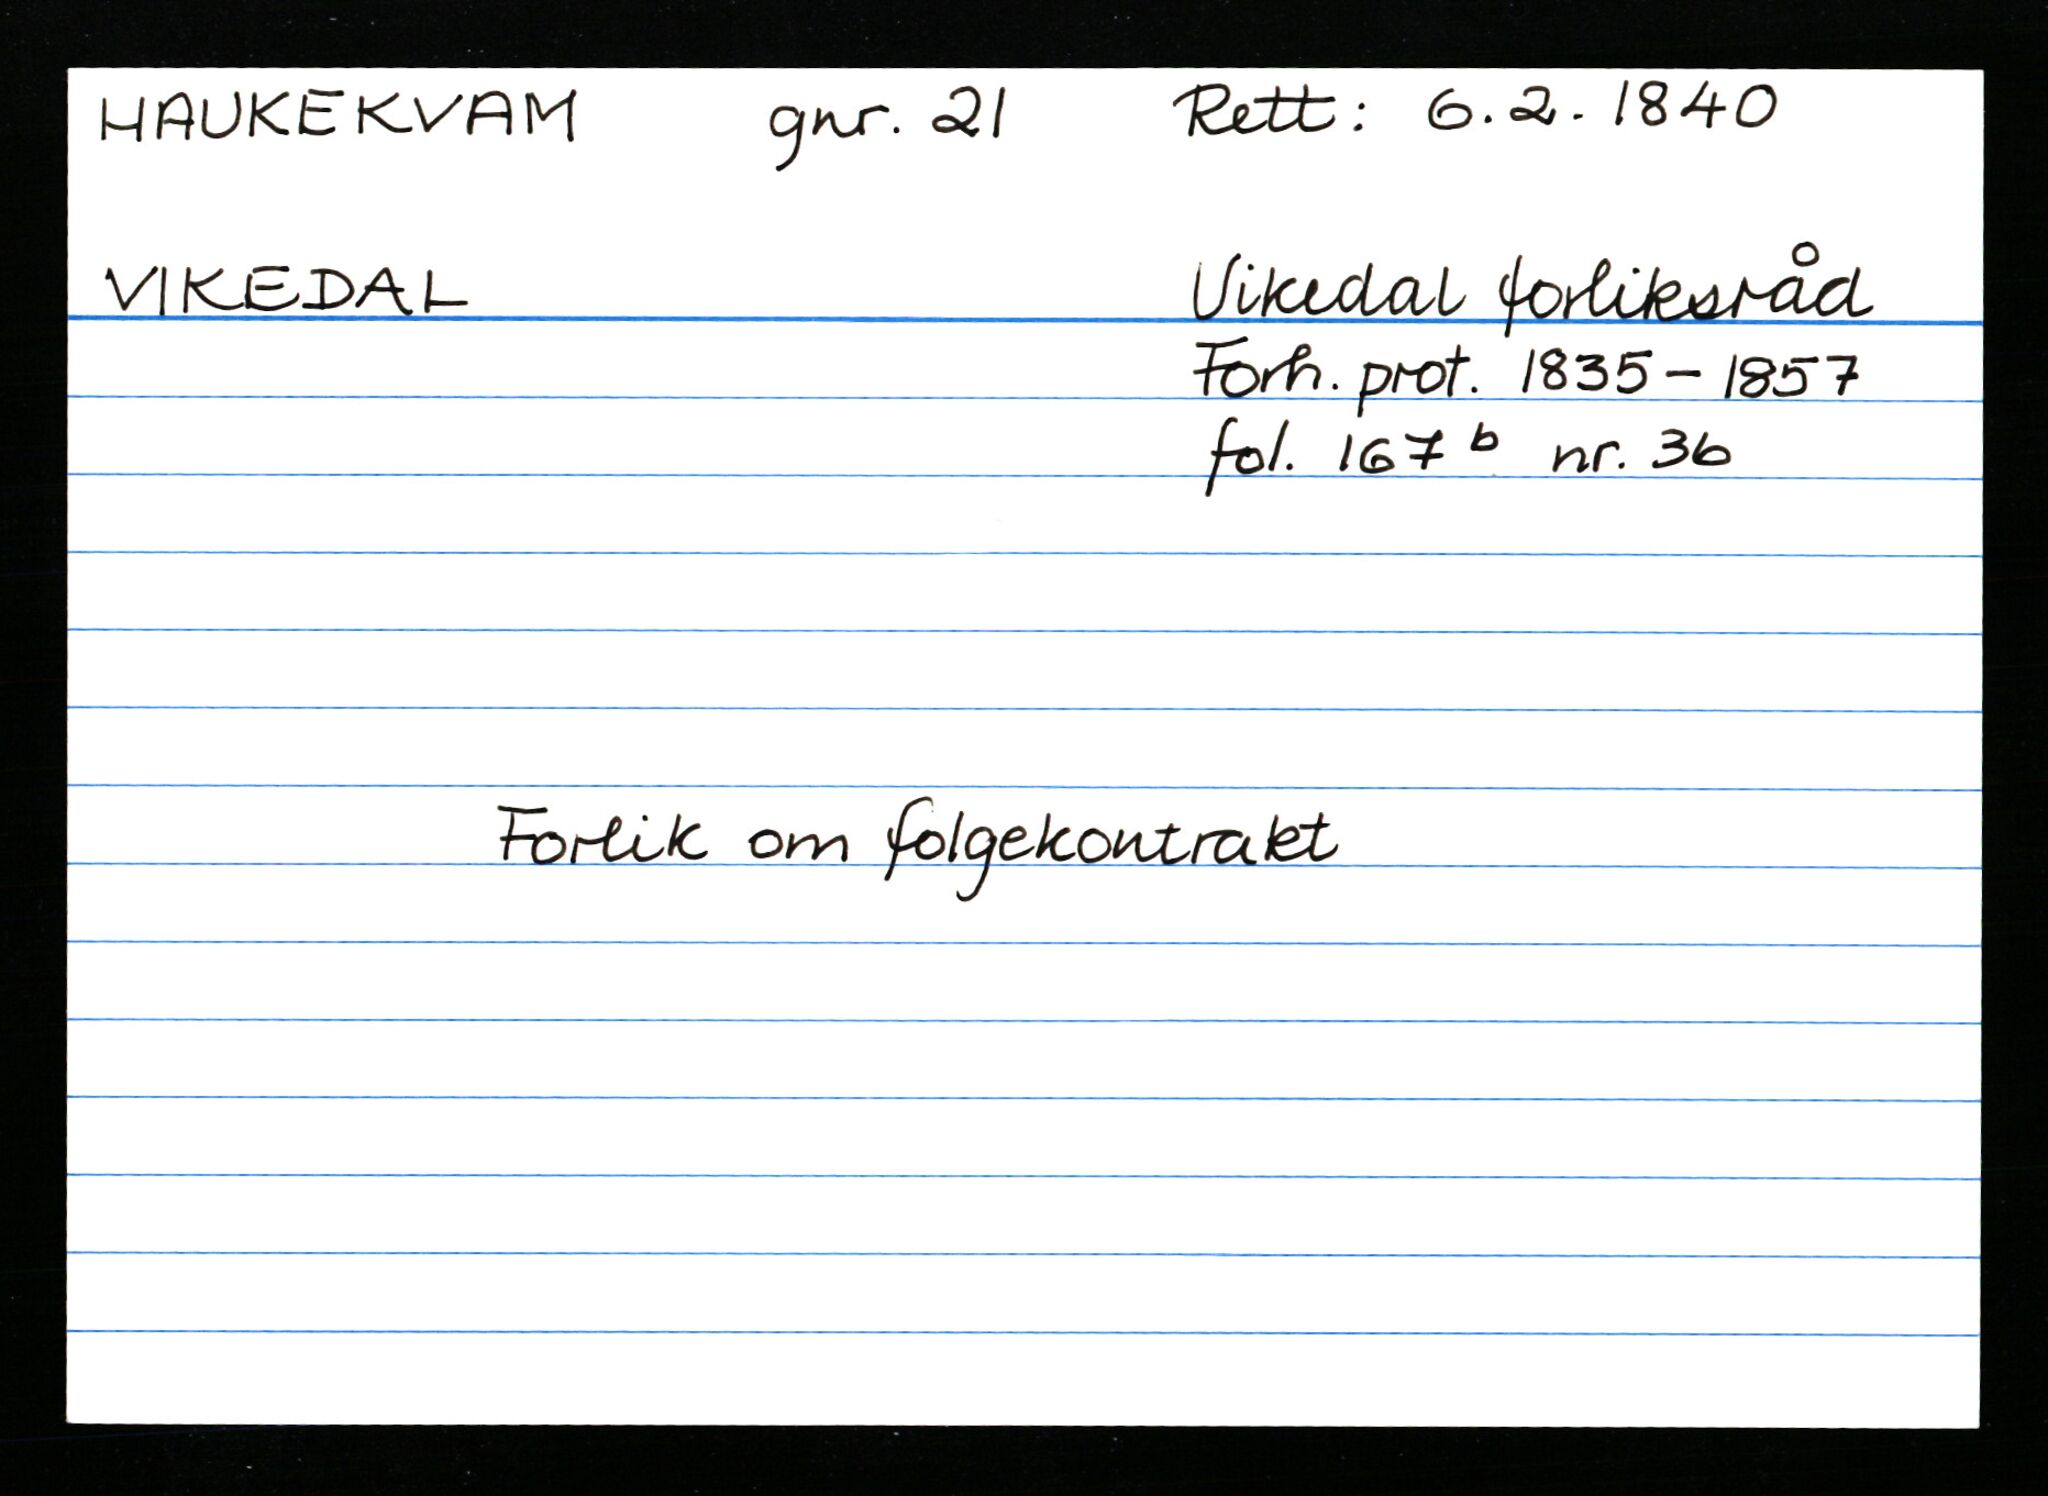 HAUKEKVAM gnr. 21 Rett: 6.2.1840
VIKEDAL Vikedal forliksråd
Forh. prot. 1835-1857
fol. 167b nr. 36
Forlik om folgekontrakt